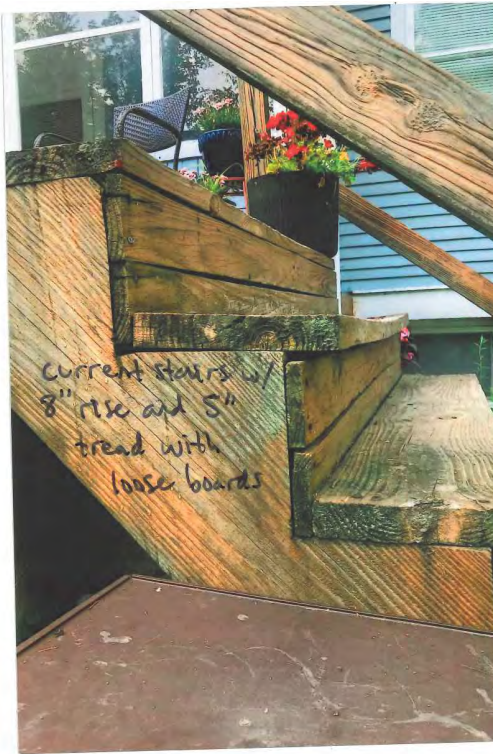 current stairs w/
8" rise and 5"
tread with
loose boards